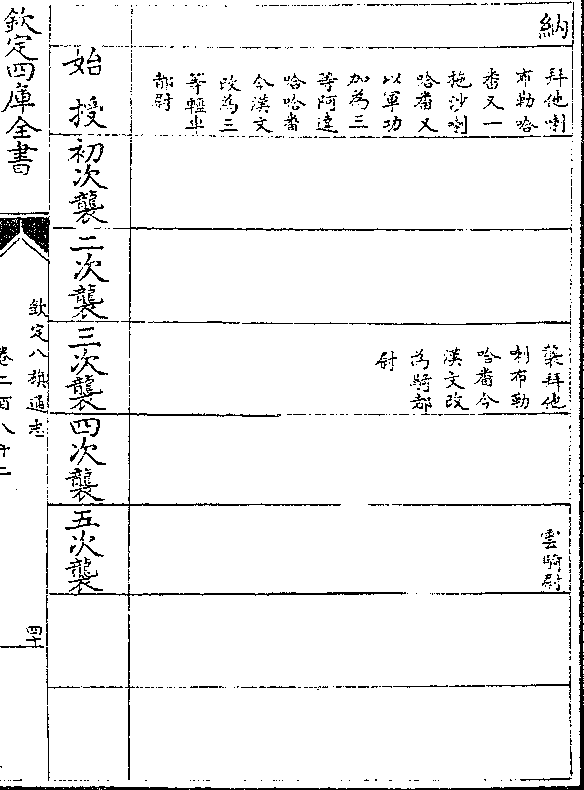 納
拜他喇
布勒哈
番又一
拖沙喇
哈番又
以軍功
加為三
等阿達
哈哈番
今漢文
改為三
等輕車
都尉
襲拜他
喇布勒
哈番今
漢文改
為騎都
尉
雲騎尉
始授
初次襲
二次襲
三次襲
四次襲
五次襲
欽定四庫全書
欽定八旗通志
卷二百八十二
四十